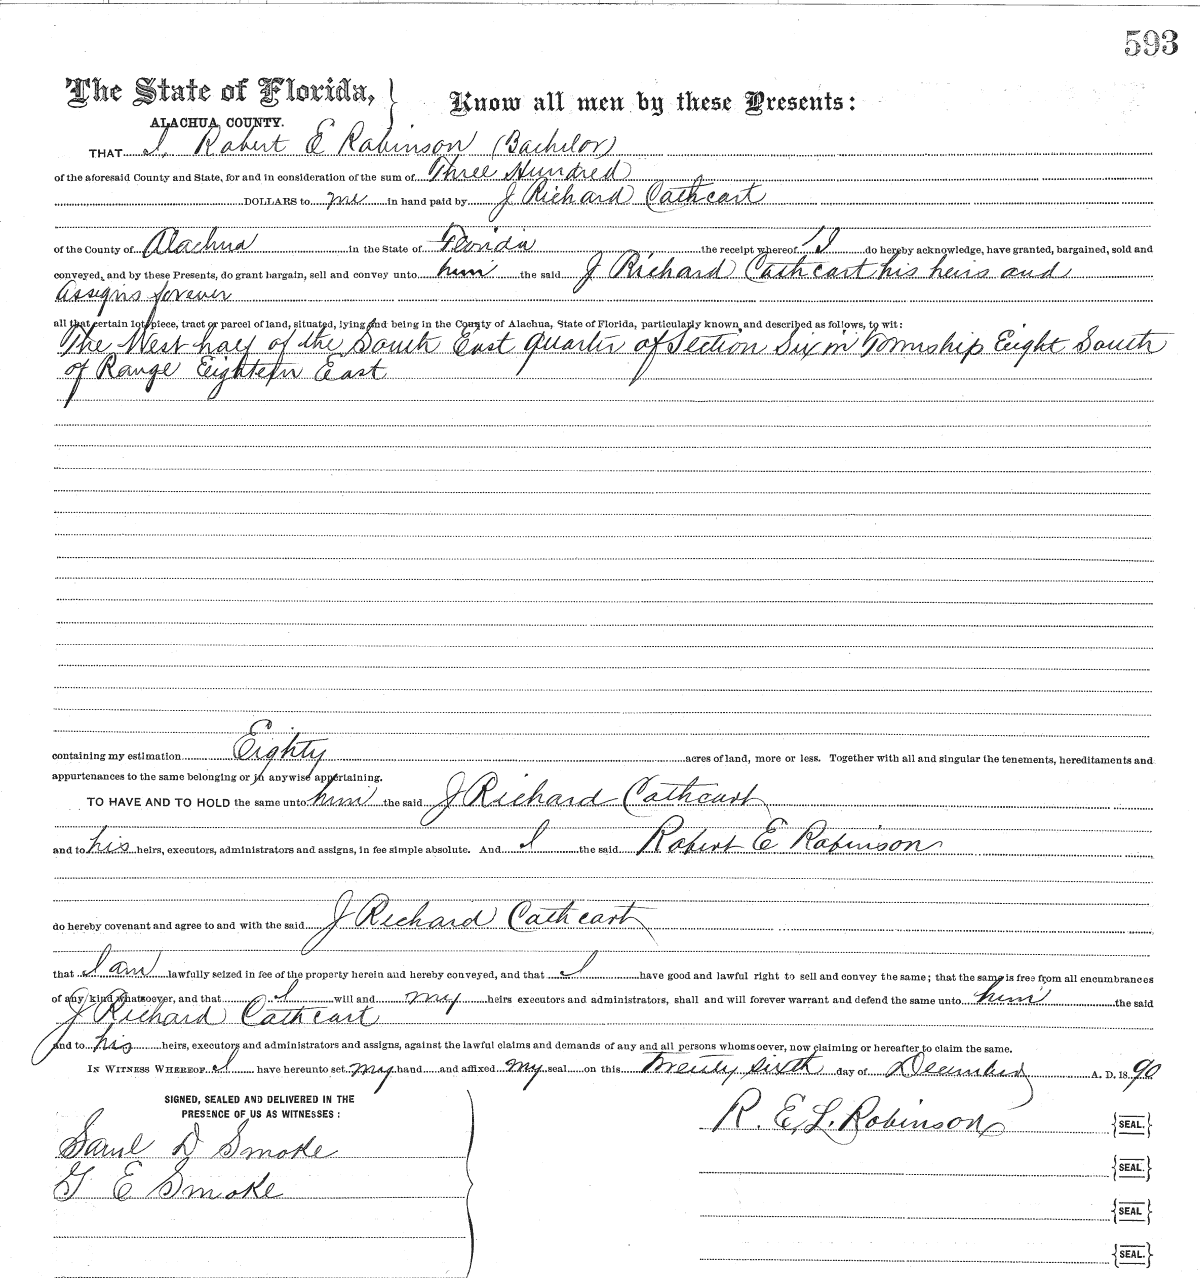 593
The State of Florida, Know all men by these Presents:
ALACHUA COUNTY.
THAT I, Robert E Robinson (Bachelor)
of the aforesaid County and State, for and in consideration of the sum of Three Hundred
DOLLARS to me in hand paid by J Richard Cathcart
of the County of Alachua in the State of Florida the receipt whereof I do hereby acknowledge, have granted, bargained, sold and
conveyed, and by these Presents, do grant bargain, sell and convey unto him the said J Richard Cathcart his heirs and
assigns forever
all that certain lot, piece, tract or parcel of land, situated, lying and being in the County of Alachua, State of Florida, particularly known, and described as follows, to wit:
The West half of the South East quarter of Section Six in Township Eight South
of Range Eighteen East
containing my estimation Eighty acres of land, more or less. Together with all and singular the tenements, hereditaments and
appurtenances to the same belonging or in anywise appertaining.
TO HAVE AND TO HOLD the same unto him the said J Richard Cathcart
and to his heirs, executors, administrators and assigns, in fee simple absolute. And I the said Robert E Robinson
do hereby covenant and agree to and with the said J Richard Cathcart
that I am lawfully seized in fee of the property herein and hereby conveyed, and that I have good and lawful right to sell and convey the same; that the same is free from all encumbrances
of any kind whatsoever, and that I will and my heirs executors and administrators, shall and will forever warrant and defend the same unto him the said
J Richard Cathcart
and to his heirs, executors and administrators and assigns, against the lawful claims and demands of any and all persons whomsoever, now claiming or hereafter to claim the same.
IN WITNESS WHEREOF I have hereunto set my hand and affixed my seal on this Twenty sixth day of December A. D. 18 90
SIGNED, SEALED AND DELIVERED IN THE
PRESENCE OF US AS WITNESSES:
R. E. L. Robinson {SEAL.}
Saml D Smoke
{SEAL.}
G E Smoke
{SEAL}
{SEAL.}